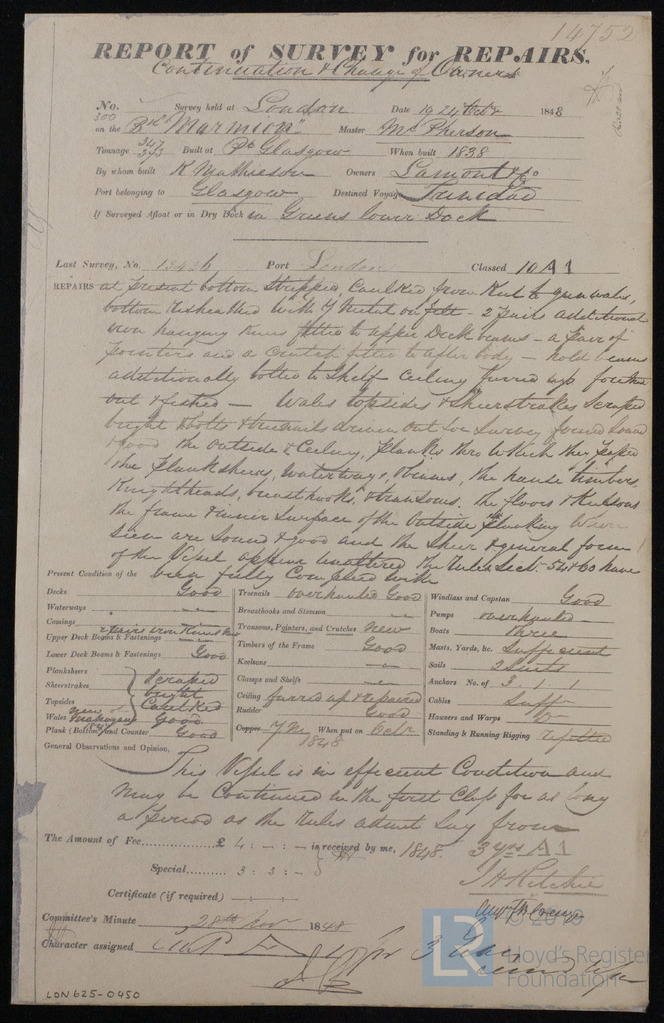 14752
REPORT of SURVEY for REPAIRS.
Continuation & Change of Owners
No. Survey held at London Date 19 24 Octr 1848
300
on the Bk "Marmion" Master McPherson
Tonnage 347 Built at Pt Glasgow When built 1838
By whom built R Mathieson Owners Lamont & Co
Port belonging to Glasgow Destined Voyage Trinidad
If Surveyed Afloat or in Dry Dock in Greens lower Dock
Last Survey, No. Port London Classed 10 A1
REPAIRS at present bottom stripped, Caulked from Keel to gunwales,
bottom resheathed with Y Metal on felt - 2 pairs additional
iron hanging knees fitted to upper Deck beams - a pair of
pointers and a crutch fitted to after body - hold beams
additionally bolted to Shelf Ceiling furred up
out & fished - Wales topsides & Sheerstrakes Scraped
bright & bolts & treenails driven out for Survey found Sound
& good the outside & Ceiling, Planks thro which they passed
the Planksheers, Waterways, beams, the hawse timbers,
Knightheads, breasthooks, & transoms. the floors & Keelsons
the frame & inner Surface of the outside planking where
seen are sound & good and the Sheer & general form
of the Vessel appear unaltered the Rules Sect. 54 & 60 have
been fully Complied with
Present Condition of the
Decks Good
Waterways
Comings
Upper Deck Beams & Fastenings
Lower Deck Beams & Fastenings Good
Planksheers
Sheerstrakes
Topsides
Scraped
bright
Caulked
Wales Good
Plank (Bottom) and Counter Good
Treenails overhauled Good
Breasthooks and Stemson
Transoms, Pointers, and Crutches New
Timbers of the Frame Good
Keelsons
Clamps and Shelfs
Ceiling furred up & repaired
Rudder Good
Copper Y M When put on Octr
1848
Windlass and Capstan Good
Pumps overhauled
Boats three
Masts, Yards, &c. Sufficient
Sails 2 Suits
Anchors No. of 3 1 1
Cables Sufft
Hawsers and Warps Do
Standing & Running Rigging refitted
General Observations and Opinion,
This Vessel is in efficient Condition and
may be Continued in the first Class for as long
a period as the Rules admit Say from
The Amount of Fee............£ 4 : - : - is received by me, 1848. 3 yrs A1
Special.......... 3 : 3 : -
J H Ritchie
Certificate (if required)
Committee's Minute 28th Nov 1848
Character assigned for 3 Years
LON625-0450
© 2019
LR
Lloyd's Register
Foundation